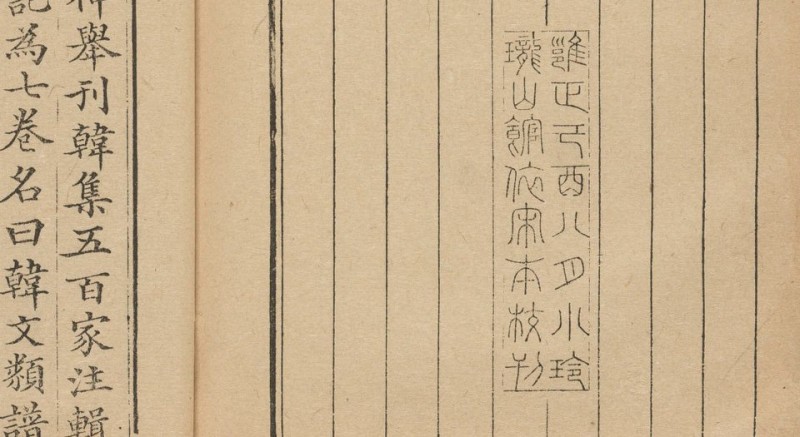 雝正己酉八月小玲
瓏山館依宋本校刊
舉刊韓集五百家注輯
記為七卷名曰韓文類譜